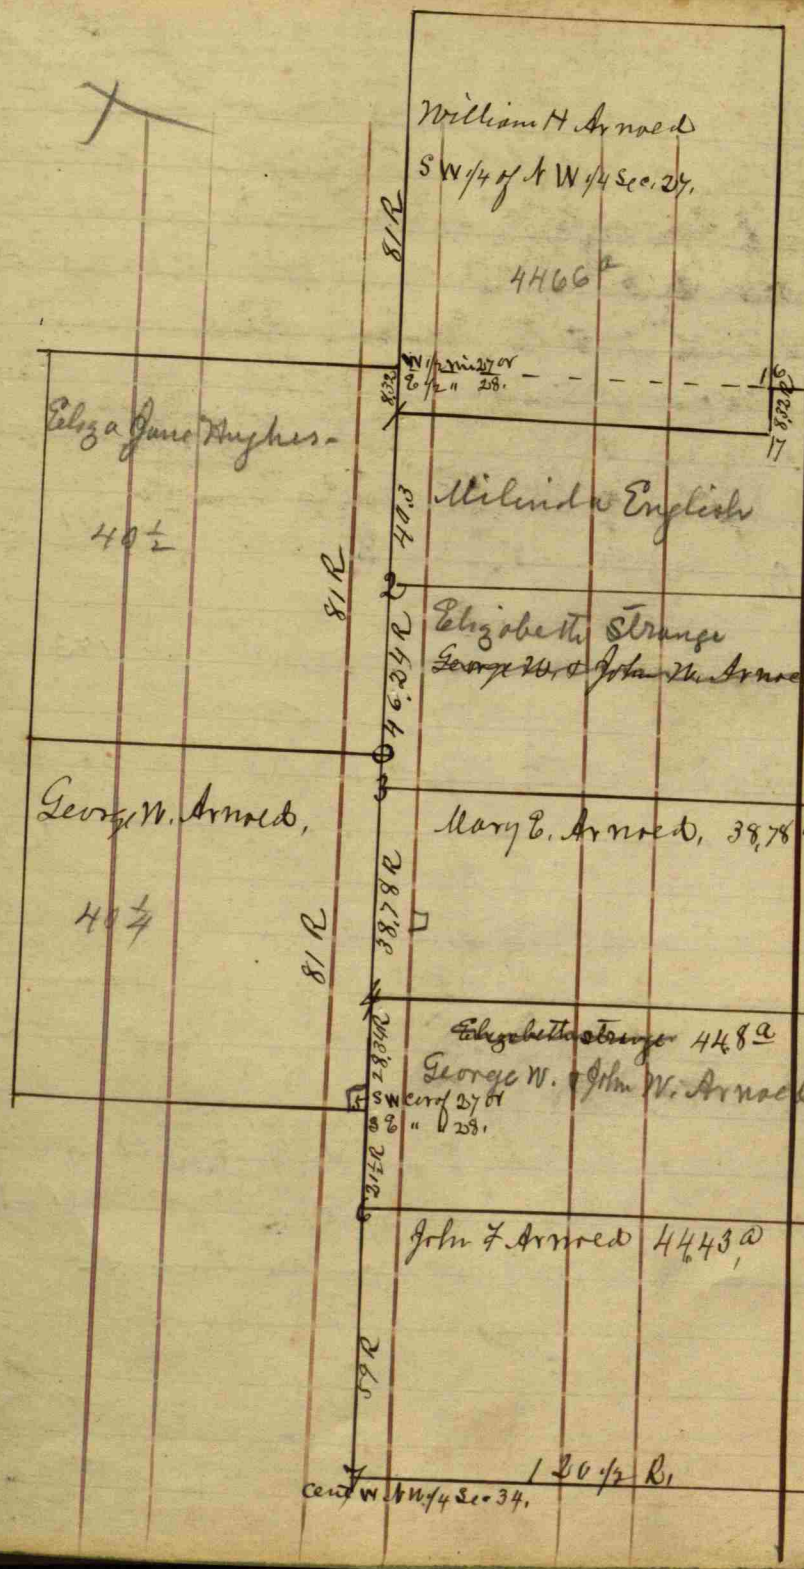 William H Arnold
S W 1/4 of N W 1/4 Sec. 27.
81 R
4466 a
W 1/2 mi 27 or
E 1/2 " 28.
8,32
8,32 R
Eliza Jane Hughes
40 1/2
81 R
40,3
Milinda English
2
Elizabeth Strange
George W. & John W. Arnol
46,24 R
3
George W. Arnold,
40 1/4
81 R
Mary E. Arnold, 38,78
38,78 R
4
Elizabeth strange 44,8 a
George W. & John W. Arnol
28,34 R
5
S W cor of 27 or
S E " " 28.
217 R
6
John F Arnold 44,43 a
59 R
7
120 1/2 R,
W N W 1/4 Sec 34.